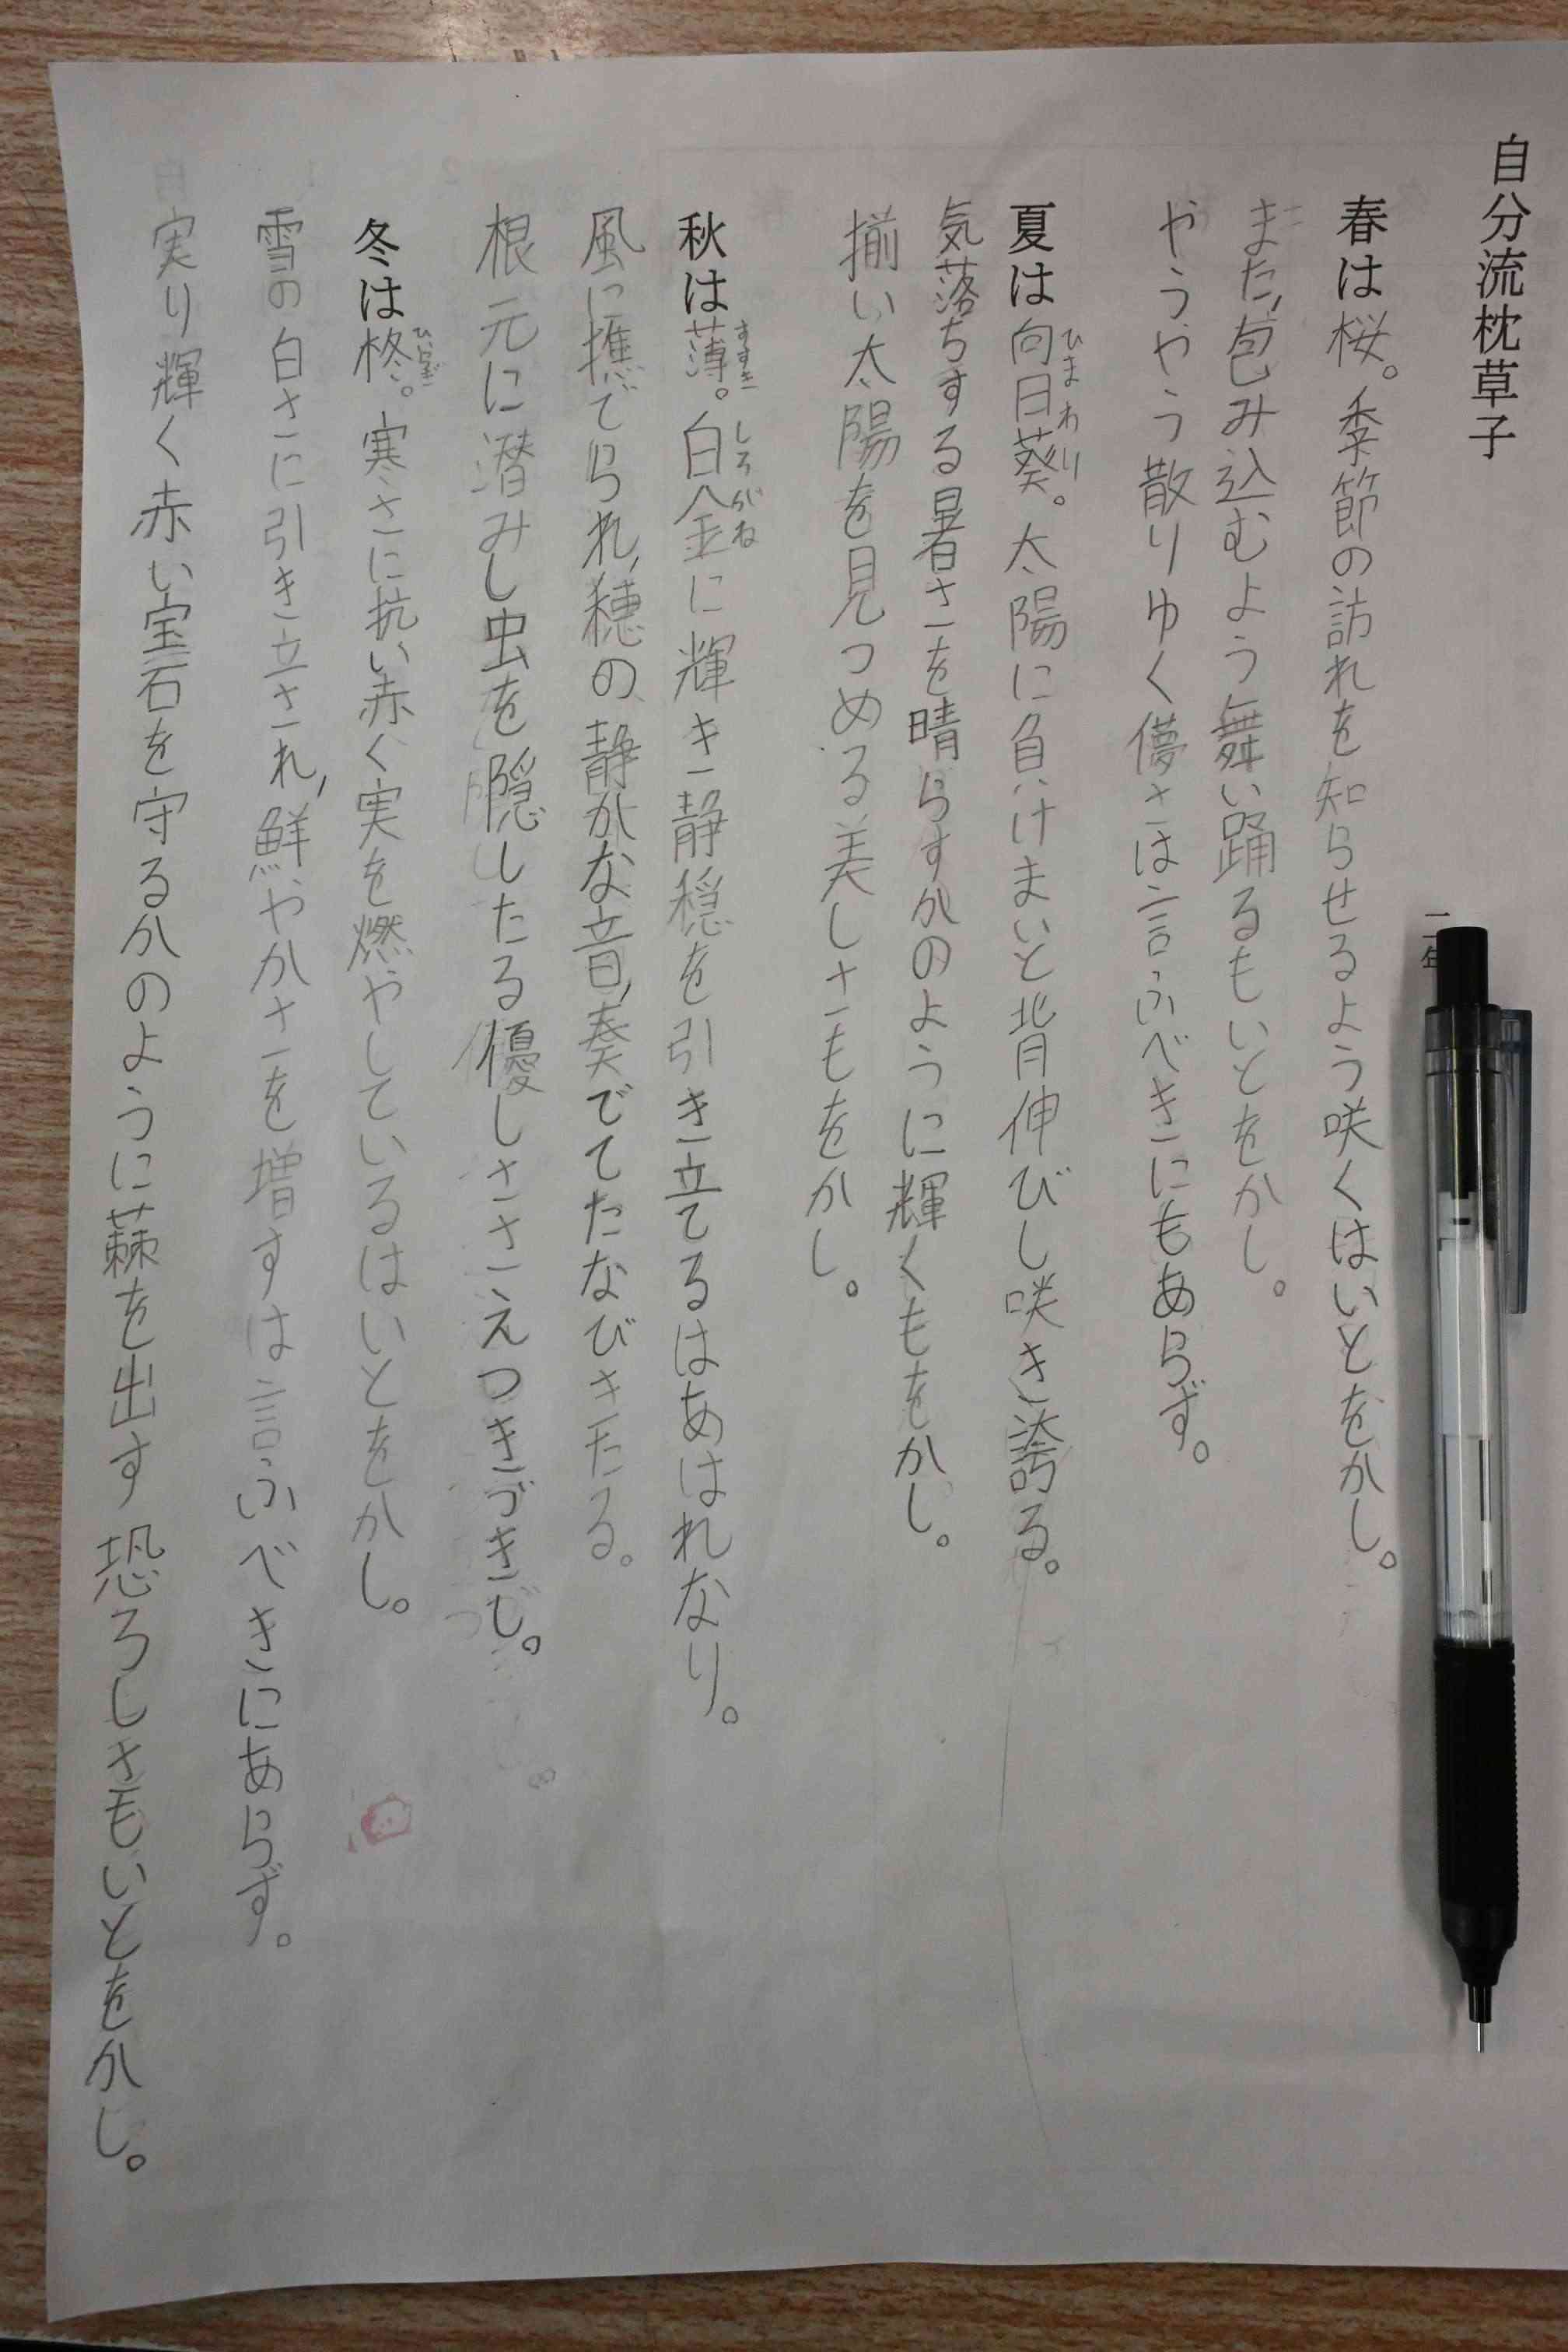 自分流枕草子
二年
春は桜。季節の訪れを知らせるよう咲くはいとをかし。
また、包み込むよう舞い踊るもいとをかし。
やうやう散りゆく儚さは言ふべきにもあらず。
夏は向日葵。太陽に負けまいと背伸びし咲き誇る。
ひまわり
気落ちする暑さを晴らすかのように輝くもをかし。
揃い太陽を見つめる美しさもをかし。
秋は薄。白金に輝き静穏を引き立てるはあはれなり。
すすき しろがね
風に撫でられ、穂の静かな音、奏でてたなびきたる。
根元に潜みし虫を隠したる優しささえつきづきじ。
冬は柊。寒さに抗い赤く実を燃やしているはいとをかし。
ひいらぎ
雪の白さに引き立され、鮮やかさを増すは言ふべきにあらず。
実り輝く赤い宝石を守るかのように棘を出す恐ろしさもいとをかし。